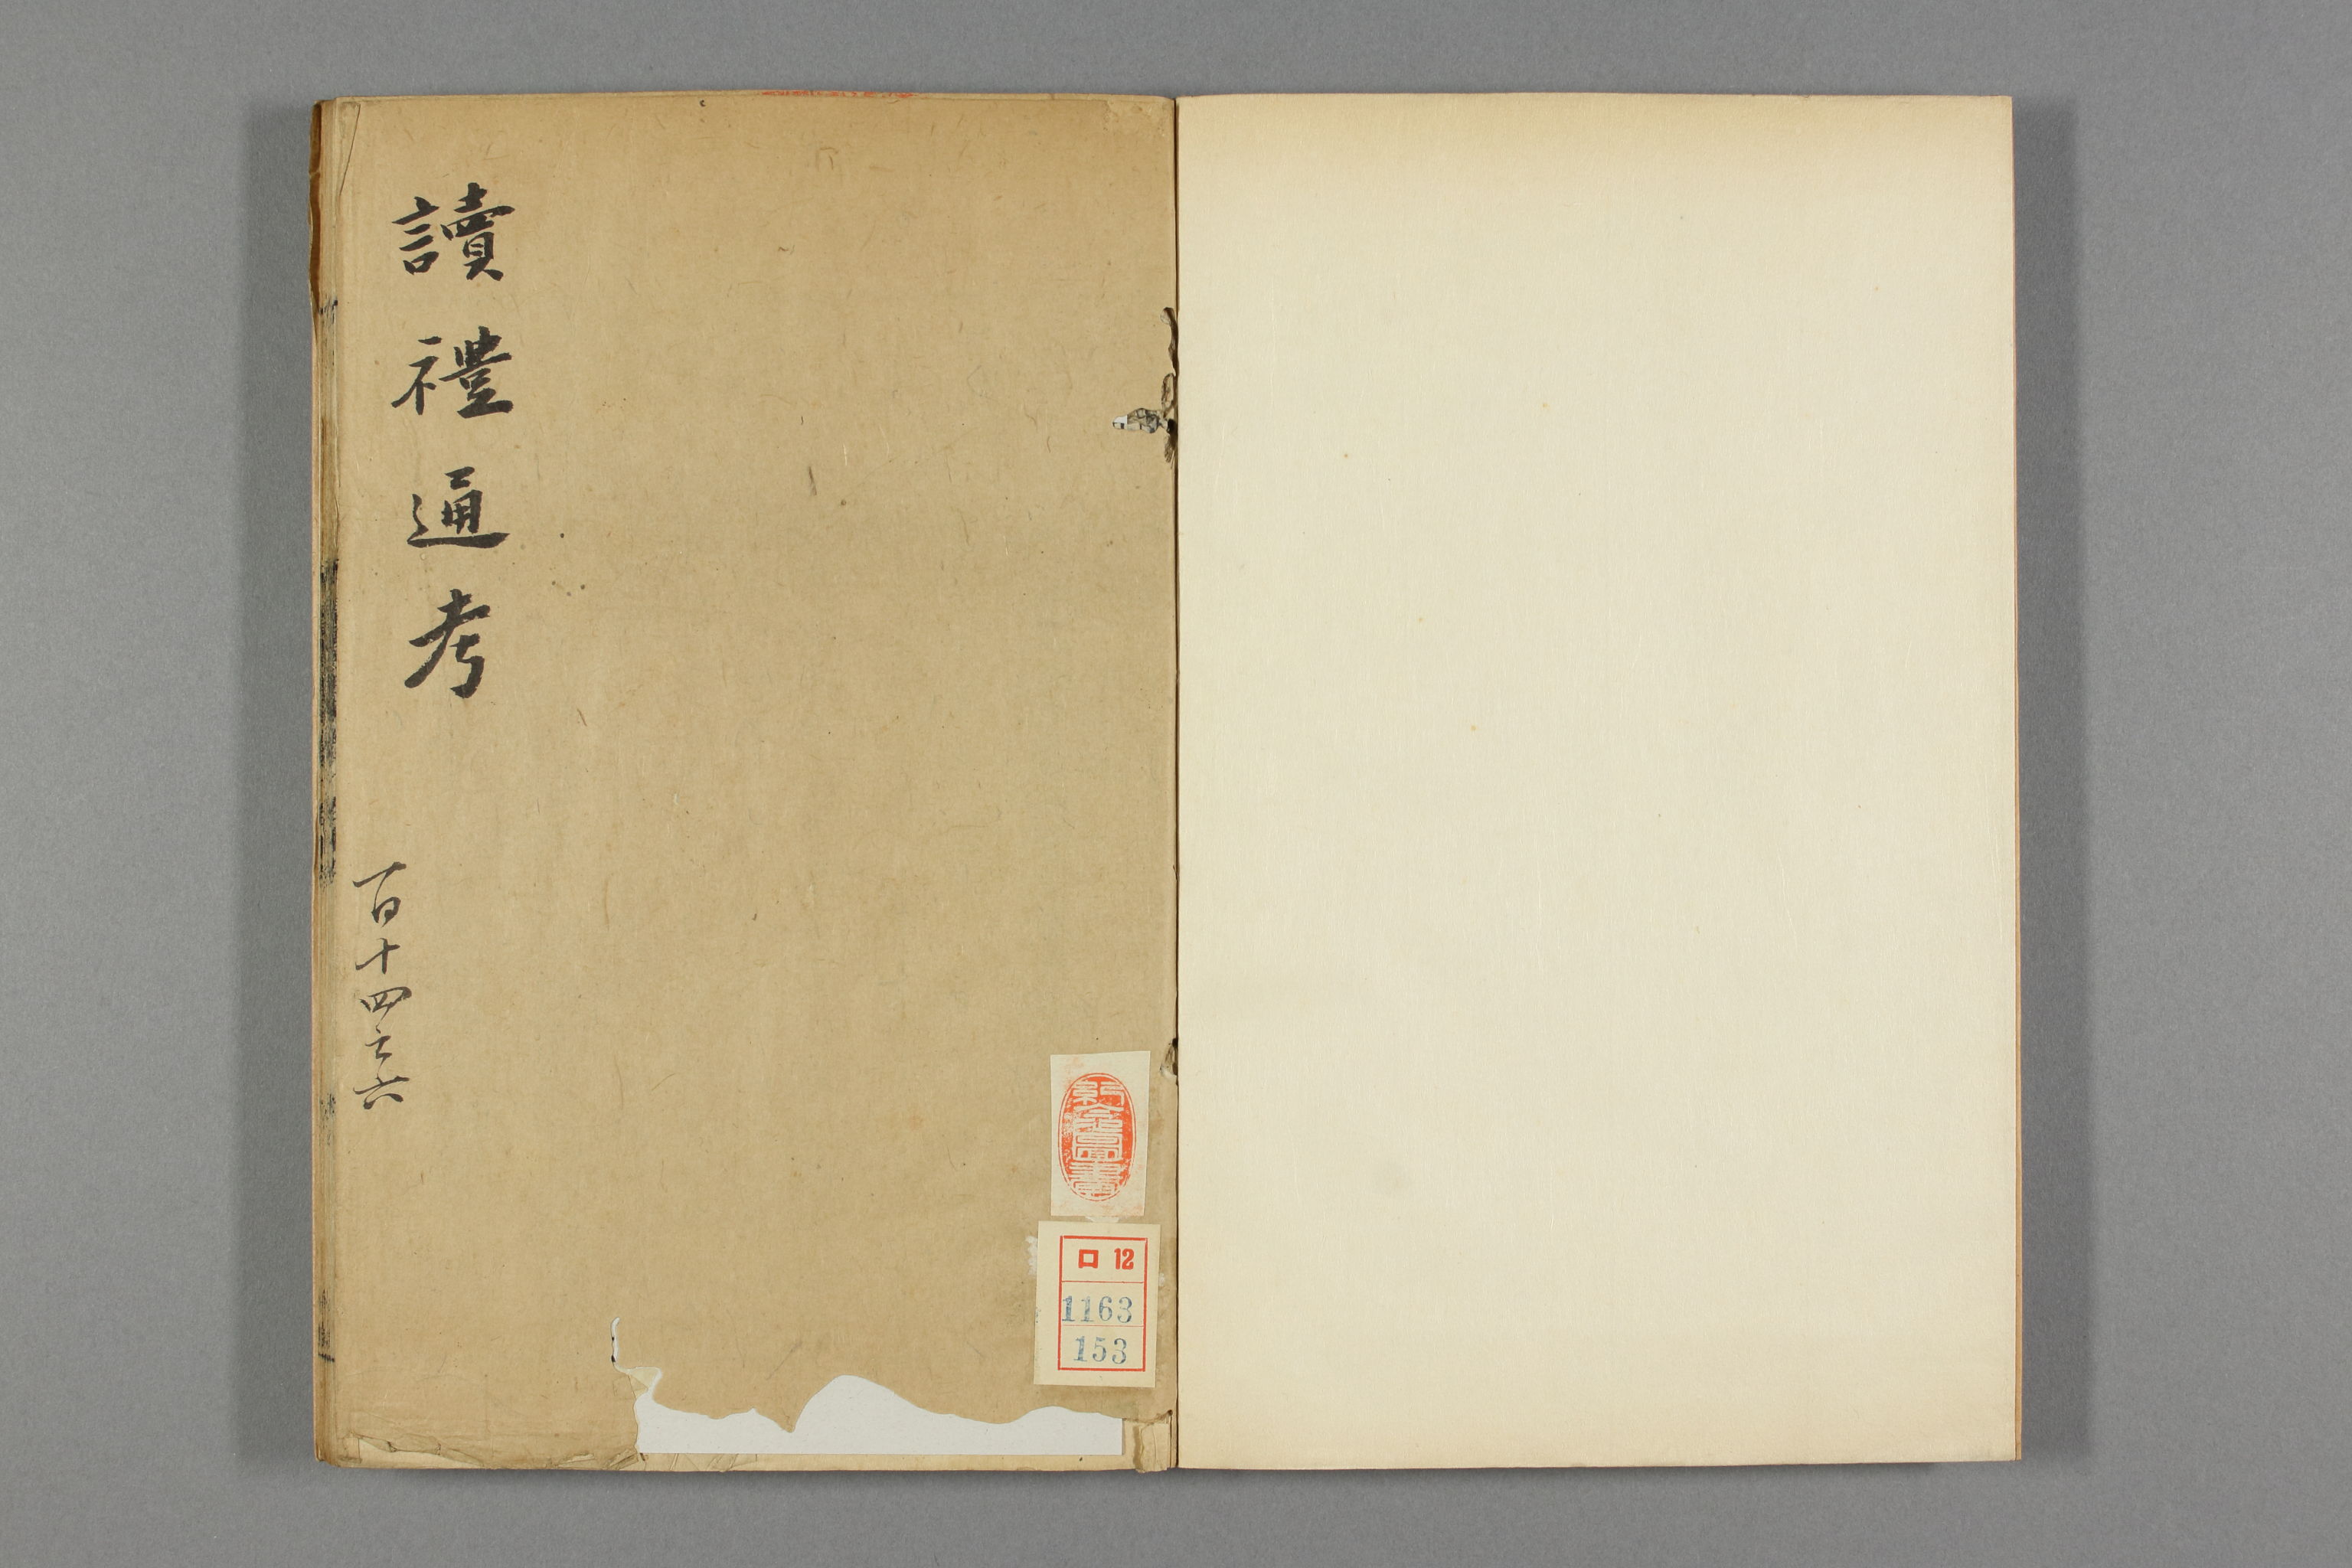 讀禮通考
百十四之六
ロ 12
1163
153